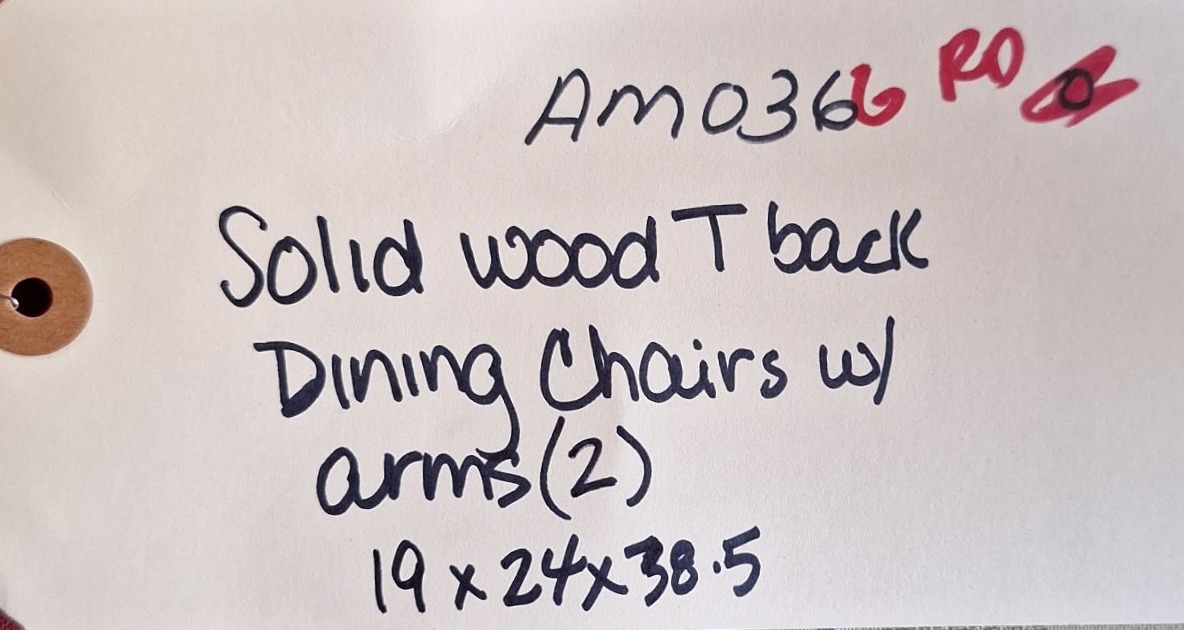 AM0366 RD
Solid wood T back
Dining Chairs w/
arms (2)
19 x 24 x 38.5